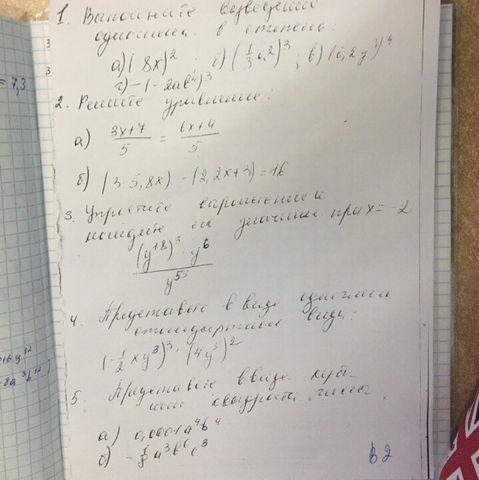 1. Выполните возведение
одночлена в степень:
а) (8x)²; б) (1/3 a²)³; в) (0,2y³)⁴
г) -(-2ab⁴)³
= 7,3
2. Решите уравнение:
а) (3x+7)/5 = (6x+4)/5
б) (3-5,8x)-(2,2x+3)=16
3. Упростите выражение и
найдите его значение при x=-2
((y¹⁸)³ · y⁶)/y⁵⁵
4. Представьте в виде одночлена
стандартного вида:
(-1/2 xy³)³ · (4y⁵)²
5. Представьте в виде
квадрата
а) 0,0001a⁴b⁴
б) -1/8 a³b⁶c³
В2